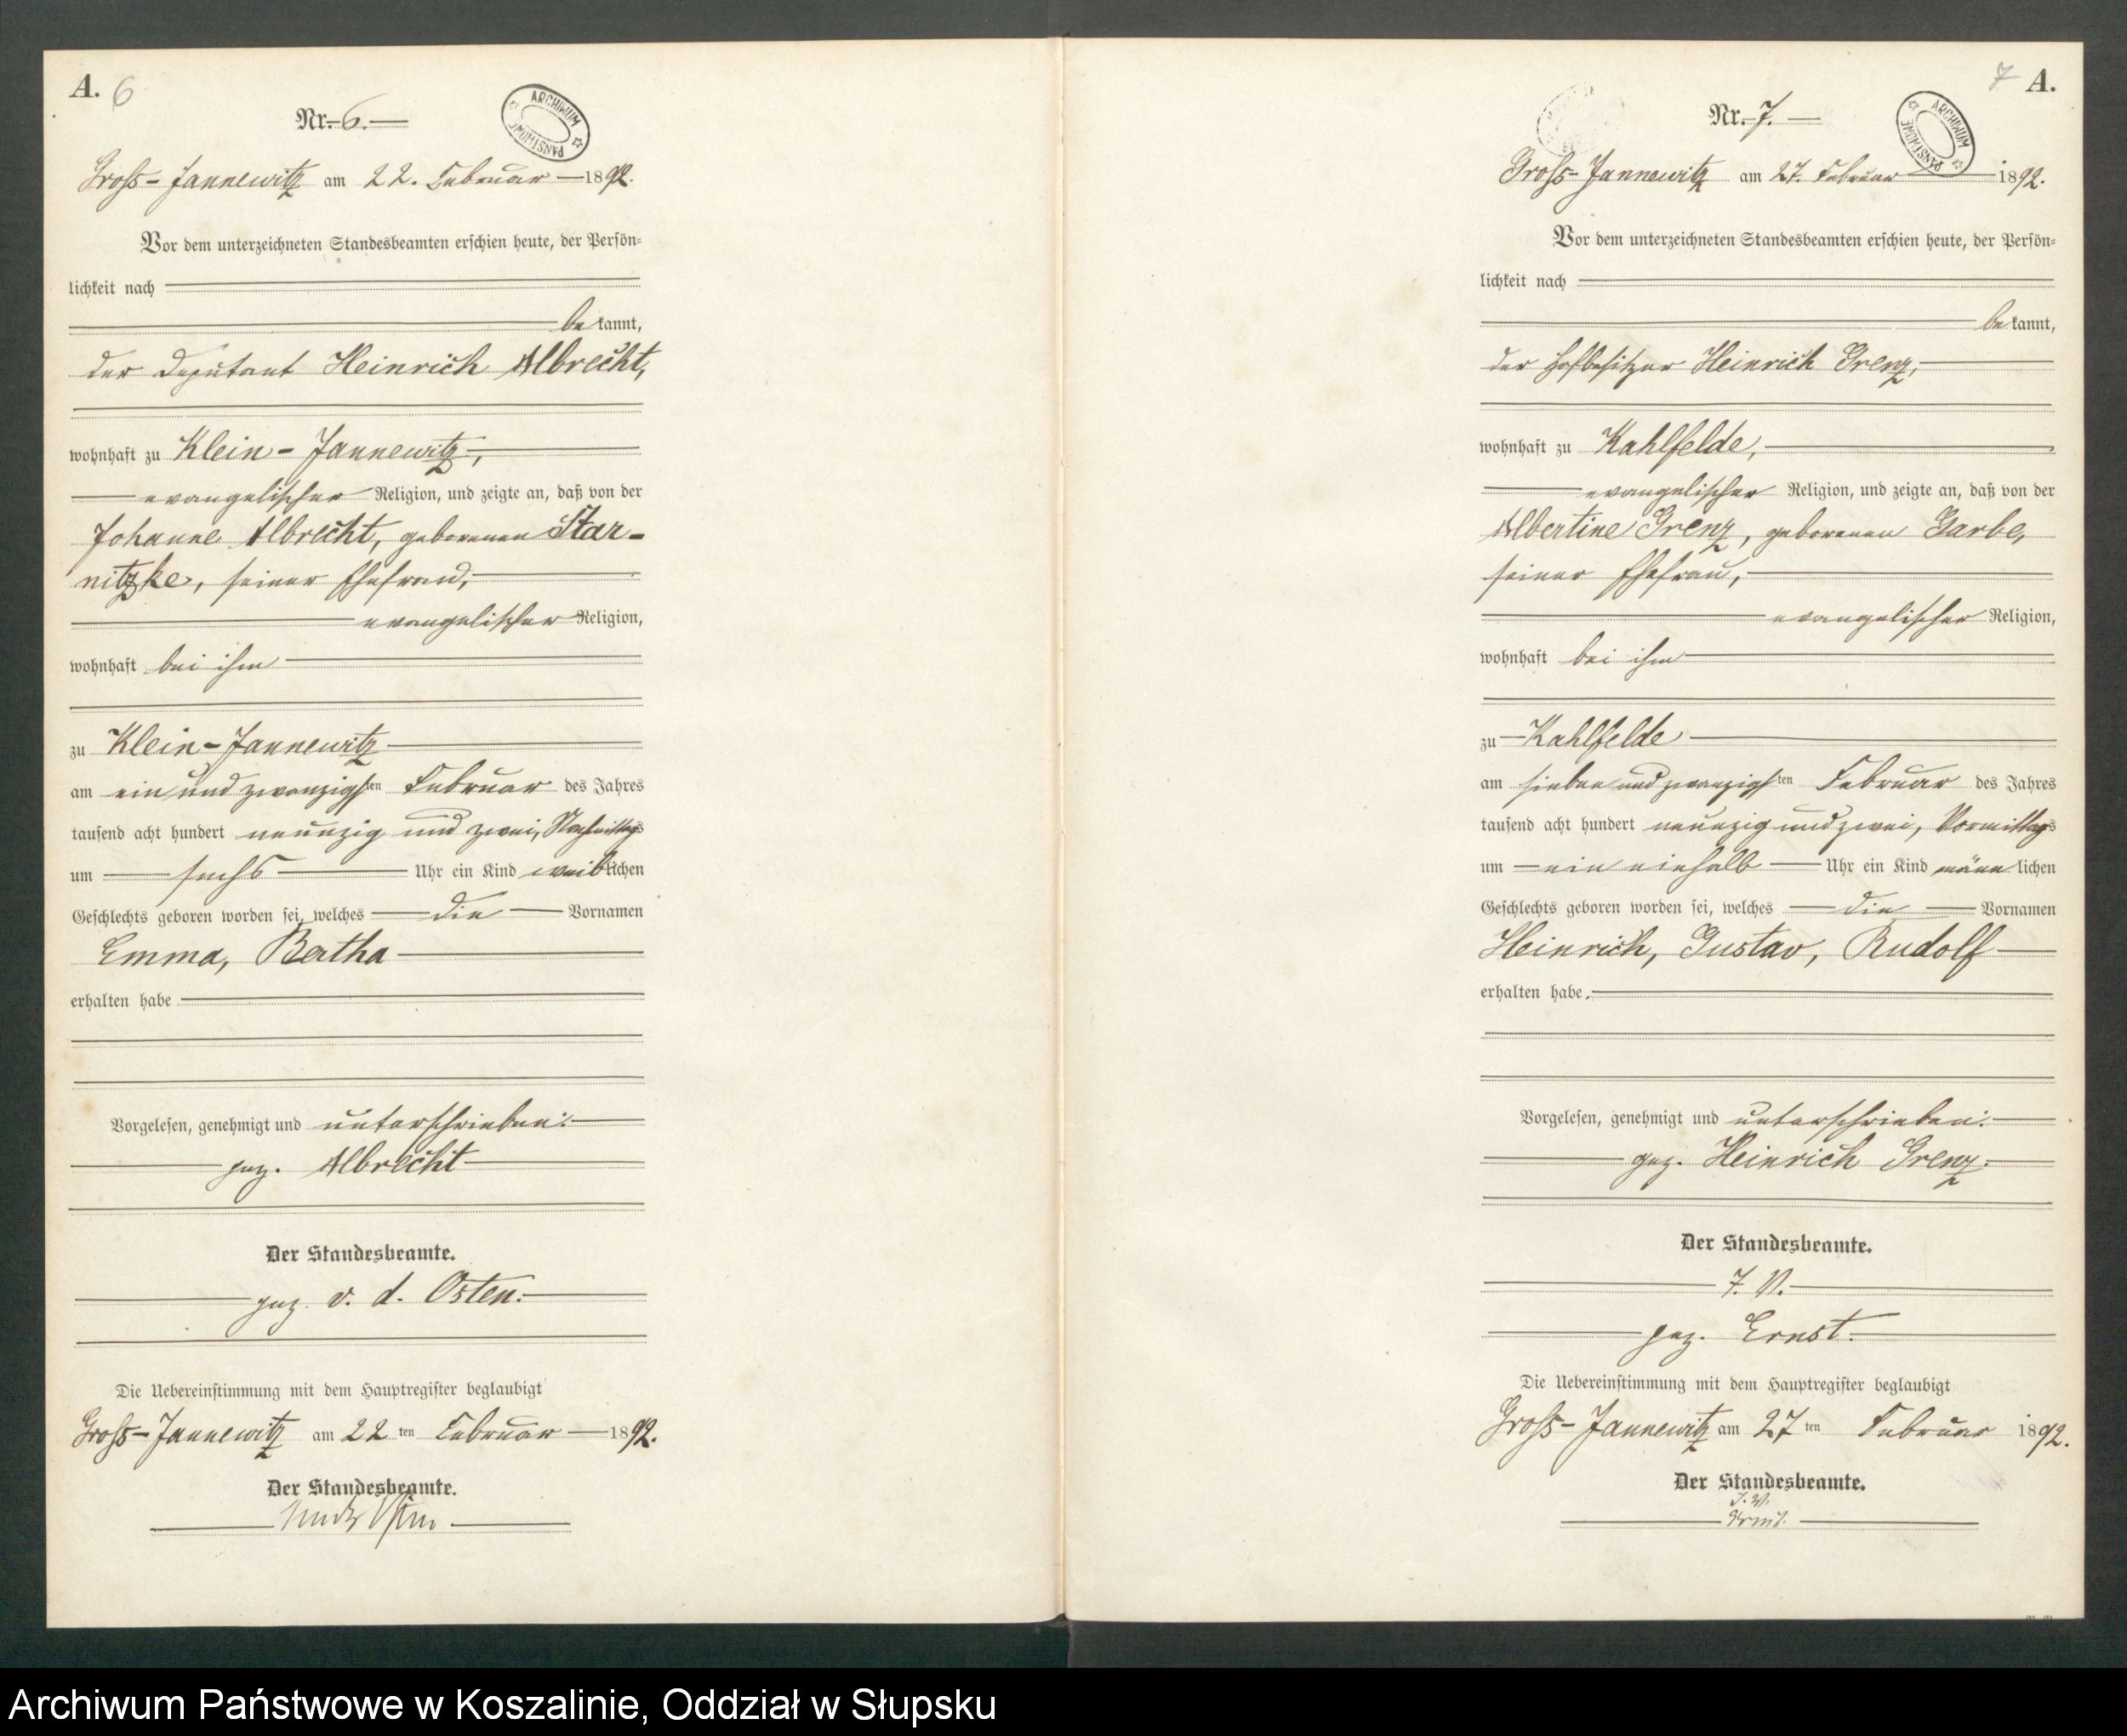 A. 6
Nr. 6.
ARCHIWUM PAŃSTWOWE
Gross-Jannewitz am 22. Februar 1892.
Vor dem unterzeichneten Standesbeamten erschien heute, der Persön-
lichkeit nach
bekannt,
der Deputant Heinrich Albrecht,
wohnhaft zu Klein-Jannewitz,
evangelischer Religion, und zeigte an, daß von der
Johanne Albrecht, geborenen Star-
nitzke, seiner Ehefrau,
evangelischer Religion,
wohnhaft bei ihm
zu Klein-Jannewitz
am ein und zwanzigsten Februar des Jahres
tausend acht hundert neunzig und zwei, Nachmittags
um sechs Uhr ein Kind weiblichen
Geschlechts geboren worden sei, welches die Vornamen
Emma, Bertha
erhalten habe
Vorgelesen, genehmigt und unterschrieben:
gez. Albrecht
Der Standesbeamte.
gez. v. d. Osten.
Die Uebereinstimmung mit dem Hauptregister beglaubigt
Gross-Jannewitz am 22 ten Februar 1892.
Der Standesbeamte.
7 A.
Nr. 7.
ARCHIWUM PAŃSTWOWE
Gross-Jannewitz am 27. Februar 1892.
Vor dem unterzeichneten Standesbeamten erschien heute, der Persön-
lichkeit nach
bekannt,
der Hofbesitzer Heinrich Grenz,
wohnhaft zu Kahlfelde,
evangelischer Religion, und zeigte an, daß von der
Albertine Grenz, geborenen Garbe,
seiner Ehefrau,
evangelischer Religion,
wohnhaft bei ihm
zu Kahlfelde
am sieben und zwanzigsten Februar des Jahres
tausend acht hundert neunzig und zwei, Vormittags
um ein einhalb Uhr ein Kind männlichen
Geschlechts geboren worden sei, welches die Vornamen
Heinrich, Gustav, Rudolf
erhalten habe.
Vorgelesen, genehmigt und unterschrieben:
gez. Heinrich Grenz.
Der Standesbeamte.
J. V.
gez. Ernst.
Die Uebereinstimmung mit dem Hauptregister beglaubigt
Gross-Jannewitz am 27 ten Februar 1892.
Der Standesbeamte.
J. V.
Ernst.
Archiwum Państwowe w Koszalinie, Oddział w Słupsku